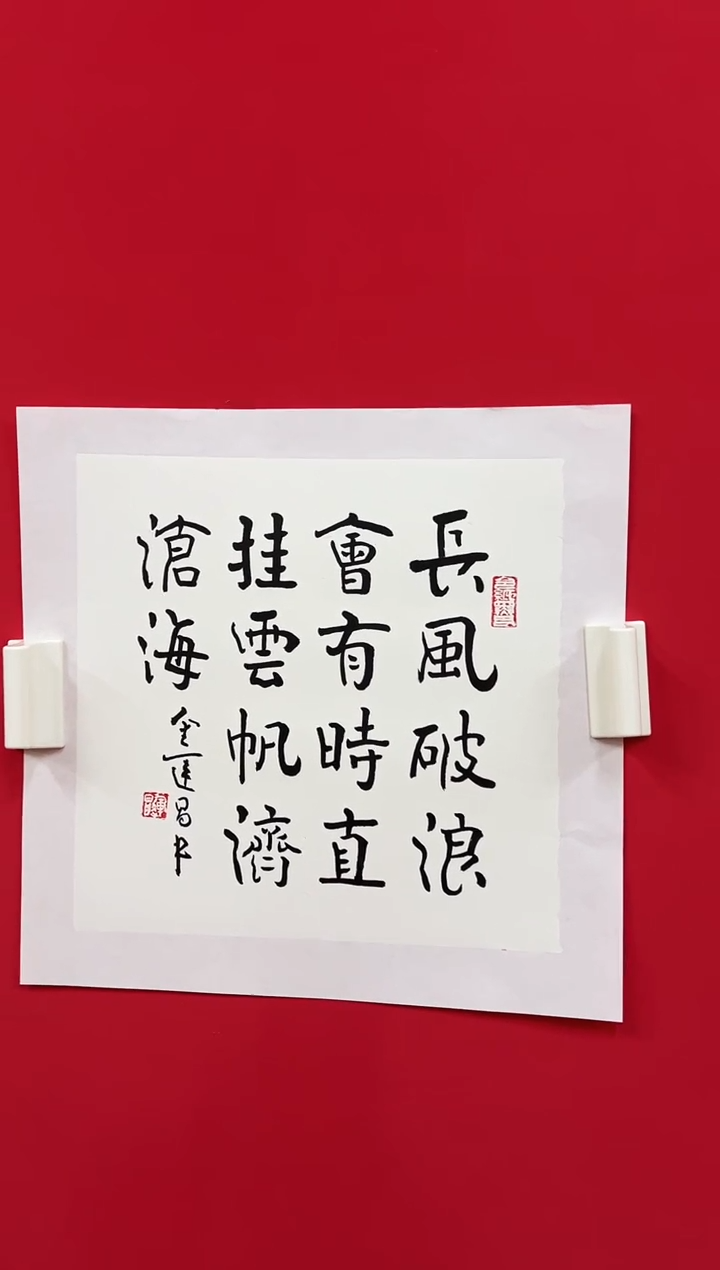 長風破浪
會有時直
挂雲帆濟
滄海
金運昌书